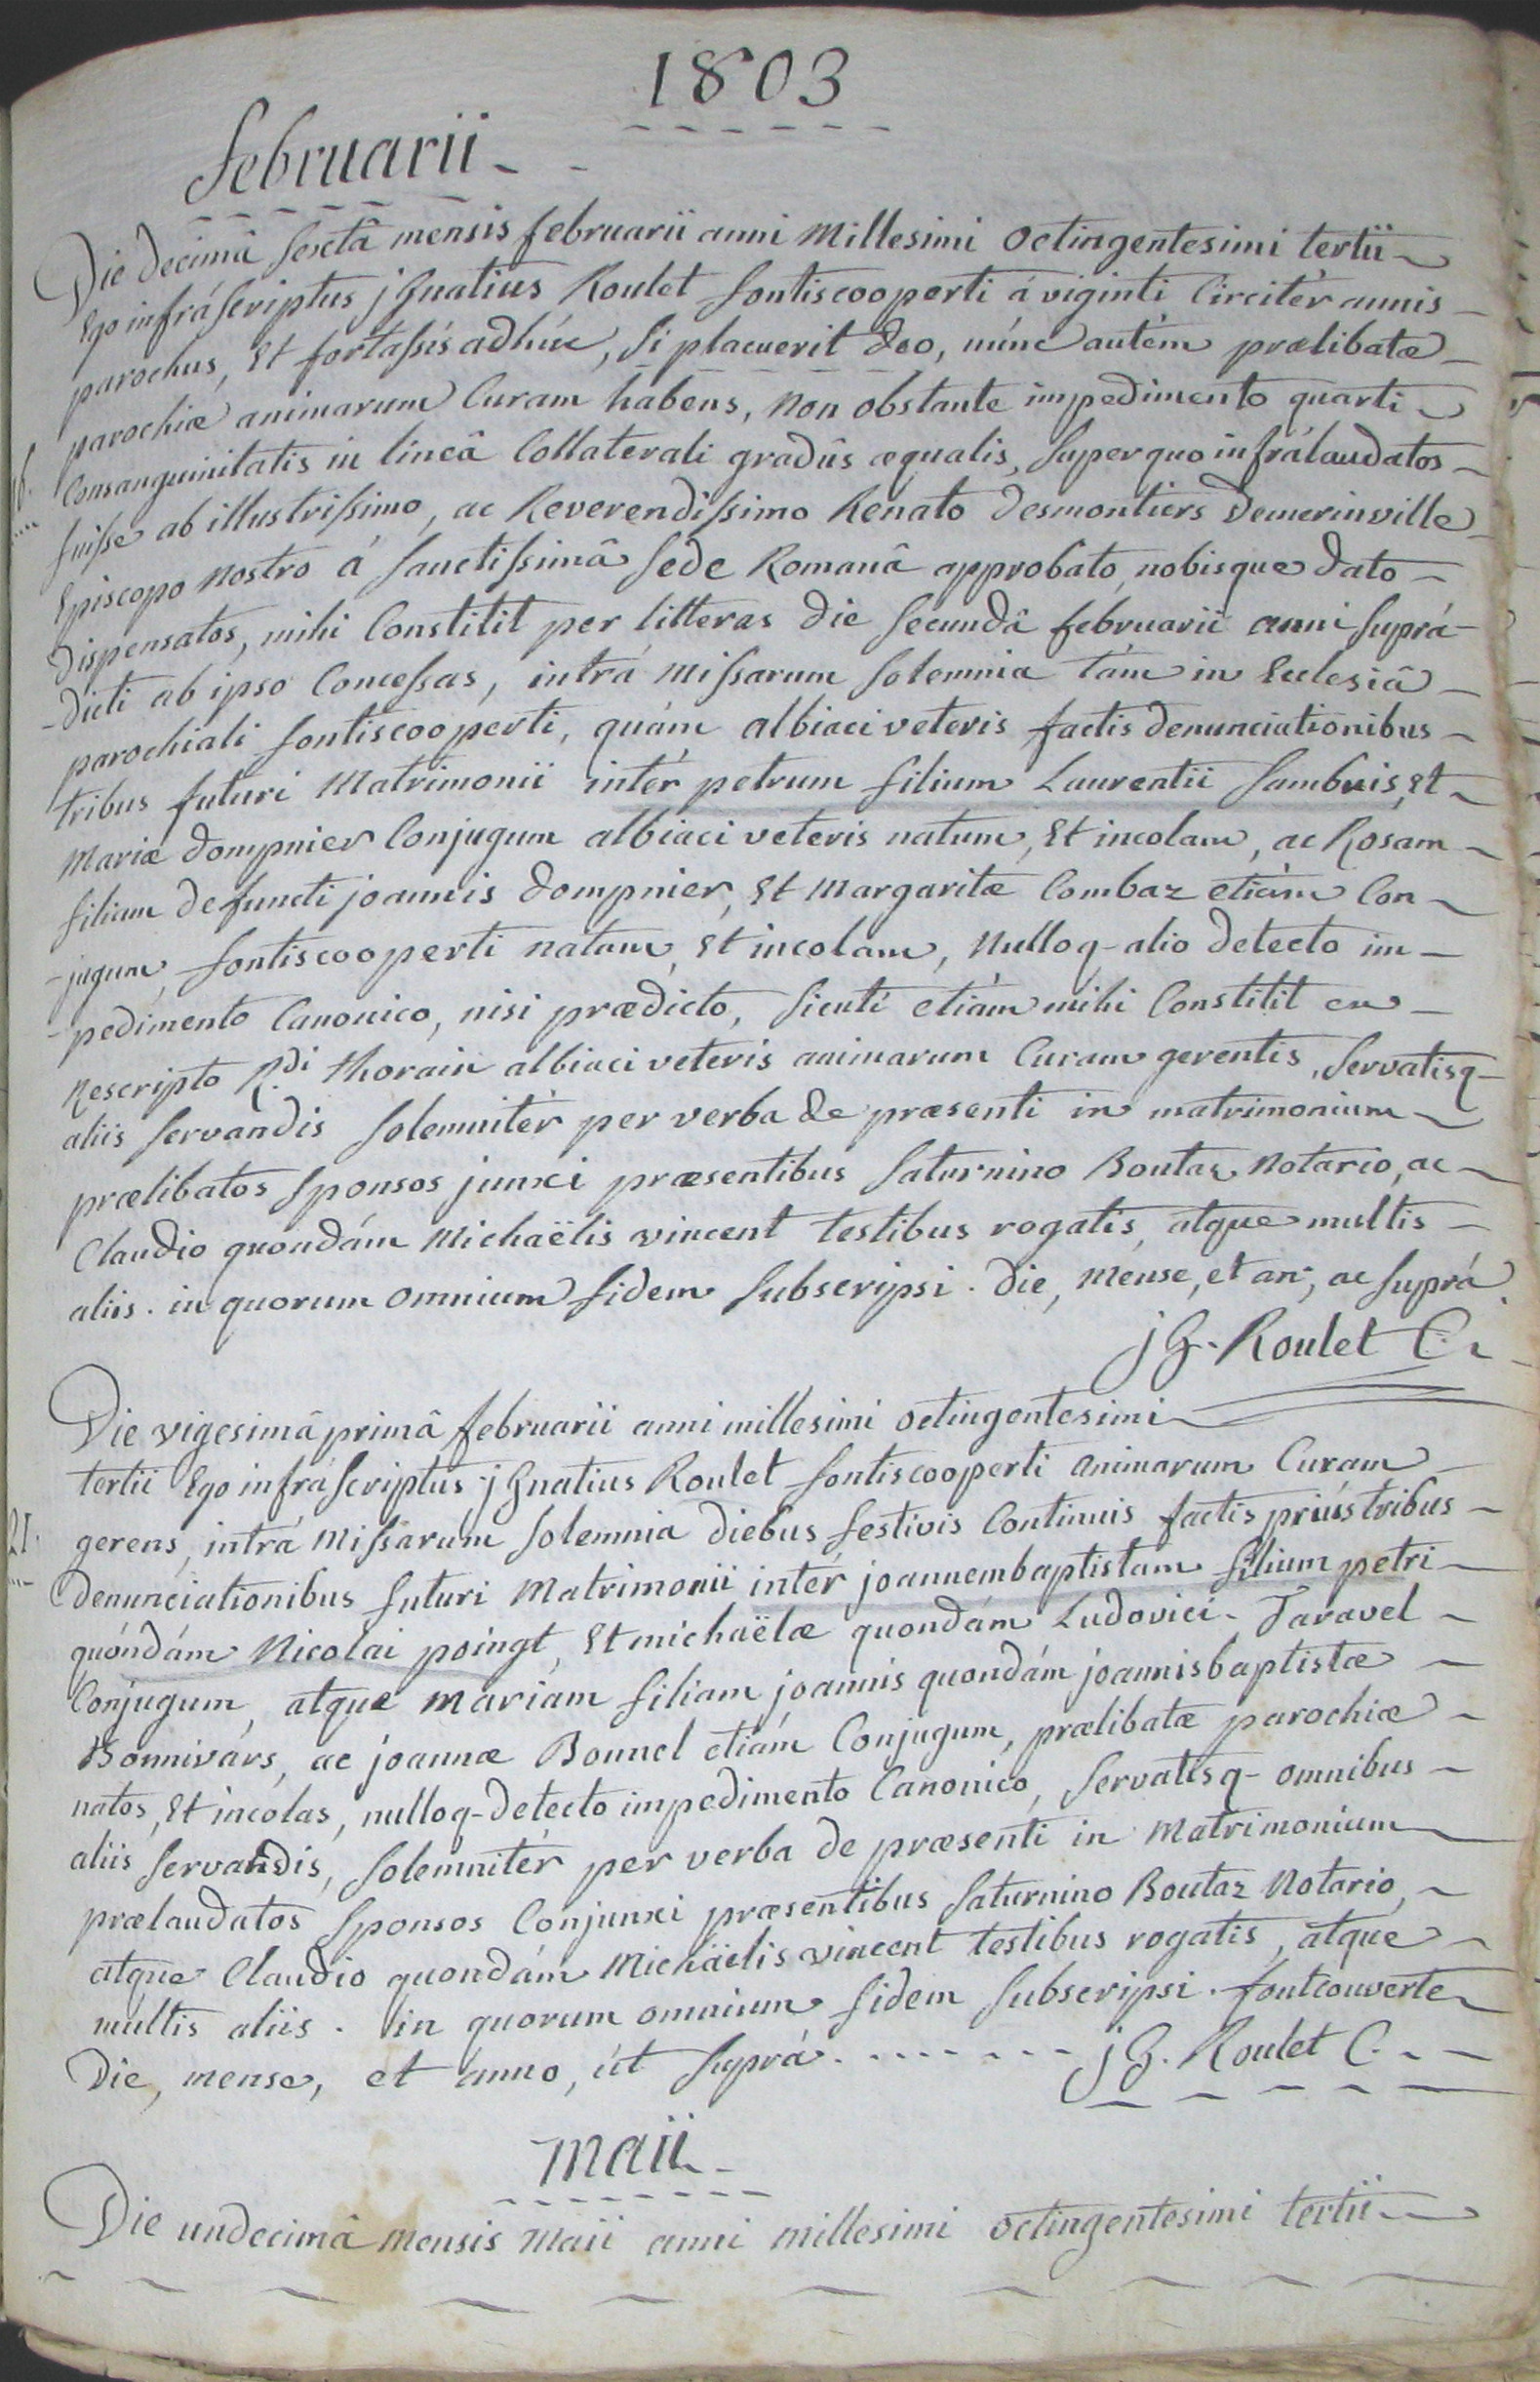 1803
februarii
Die decimâ sextâ mensis februarii anni Millesimi octingentesimi tertii
Ego infráscriptus jGnatius Roulet fontiscooperti á viginti Circitèr annis
parochus, Et fortassìs adhúc, si placuerit deo, núnc autém prælibatæ
parochiæ animarum Curam habens, non obstante impedimento quarti
Consanguinitatis in lineâ Collaterali gradûs æqualis, super quo infrálaudatos
fuisse ab illustrissimo, ac Reverendissimo Renato desmontiers demerinville
Episcopo nostro á sanctissimâ sede Romanâ approbato, nobisque dato
dispensatos, mihi Constitit per litteras die secundâ februarii anni suprá
-dicti ab ipso Concessas, intrá missarum solemnia tám in Ecclesiâ
parochiali fontiscooperti, quám albiaci veteris factis denunciationibus
tribus futuri Matrimonii intér petrum filium Laurentii sambuis, Et
Mariæ dompnier Conjugum albiaci veteris natum, Et incolam, ac Rosam
filiam defuncti joannis dompnier, Et Margaritæ Combaz etiám Con
-jugum, fontiscooperti natam, Et incolam, Nulloq- alio detecto im
-pedimento Canonico, nisi prædicto, sicutì etiám mihi Constitit ex
Rescripto R.di thorain albiaci veteris animarum Curam gerentis, servatisq-
aliis servandis solemnitér per verba de præsenti in matrimonium
prælibatos sponsos junxi præsentibus saturnino Boutaz Notario, ac
Claudio quondám Michaëlis vincent testibus rogatis, atque multis
aliis. in quorum omnium fidem subscripsi. die, mense, et an-, ac suprá.
jG. Roulet C.
Die vigesimâ primâ februarii anni millesimi octingentesimi
21.
tertii Ego infráscriptus jGnatius Roulet fontiscooperti animarum Curam
gerens, intrá missarum solemnia diebus festivis Continuis factis priús tribus
denunciationibus futuri Matrimonii intér joannembaptistam filium petri
quóndám Nicolai poingt, Et michaëlæ quondám Ludovici Taravel
Conjugum, atque mariam filiam joannis quondám joannisbaptistæ
Bonnivárs, ac joannæ Bonnel etiám Conjugum, prælibatæ parochiæ
natos, Et incolas, nulloq- detecto impedimento Canonico, servatisq- omnibus
aliis servandis, solemnitér per verba de præsenti in Matrimonium
prælaudatos sponsos Conjunxi præsentibus saturnino Boutaz Notario,
atque Claudio quondám Michaëlis vincent testibus rogatis, atque
multis aliis. in quorum omnium fidem subscripsi. fontcouverte
Die, mense, et anno, út suprá. jG. Roulet C.
Maii
Die undecimâ mensis Maii anni millesimi octingentesimi tertii